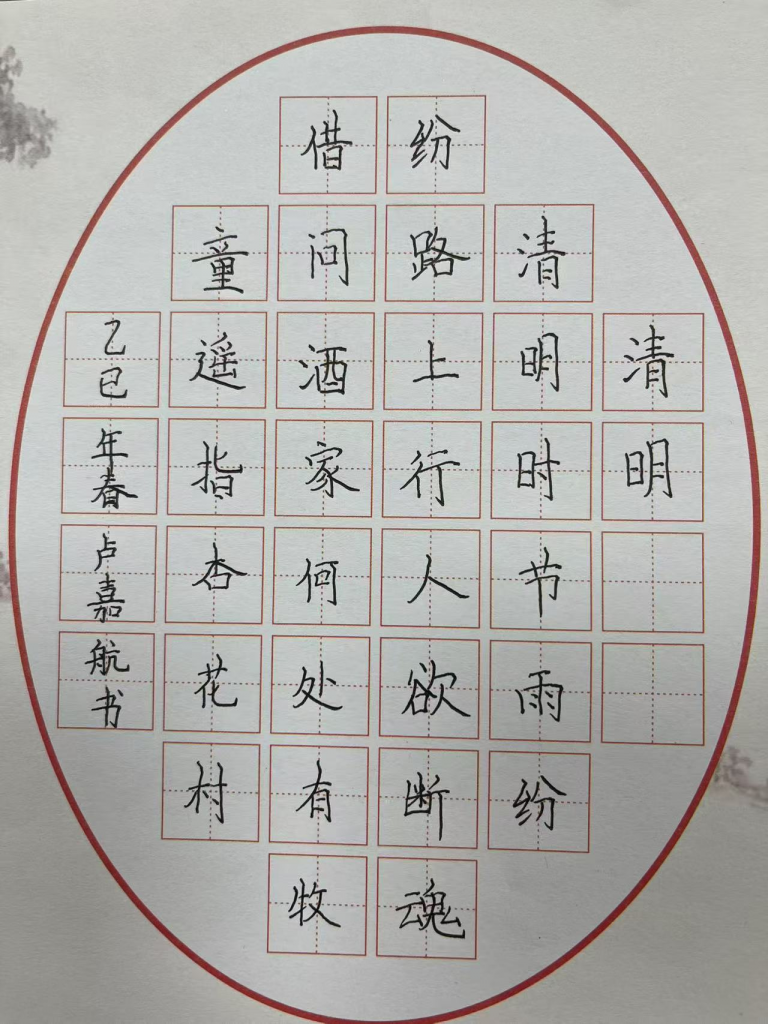 清明
清明时节雨纷
纷路上行人欲断魂
借问酒家何处有牧
童遥指杏花村
乙巳年春卢嘉航书